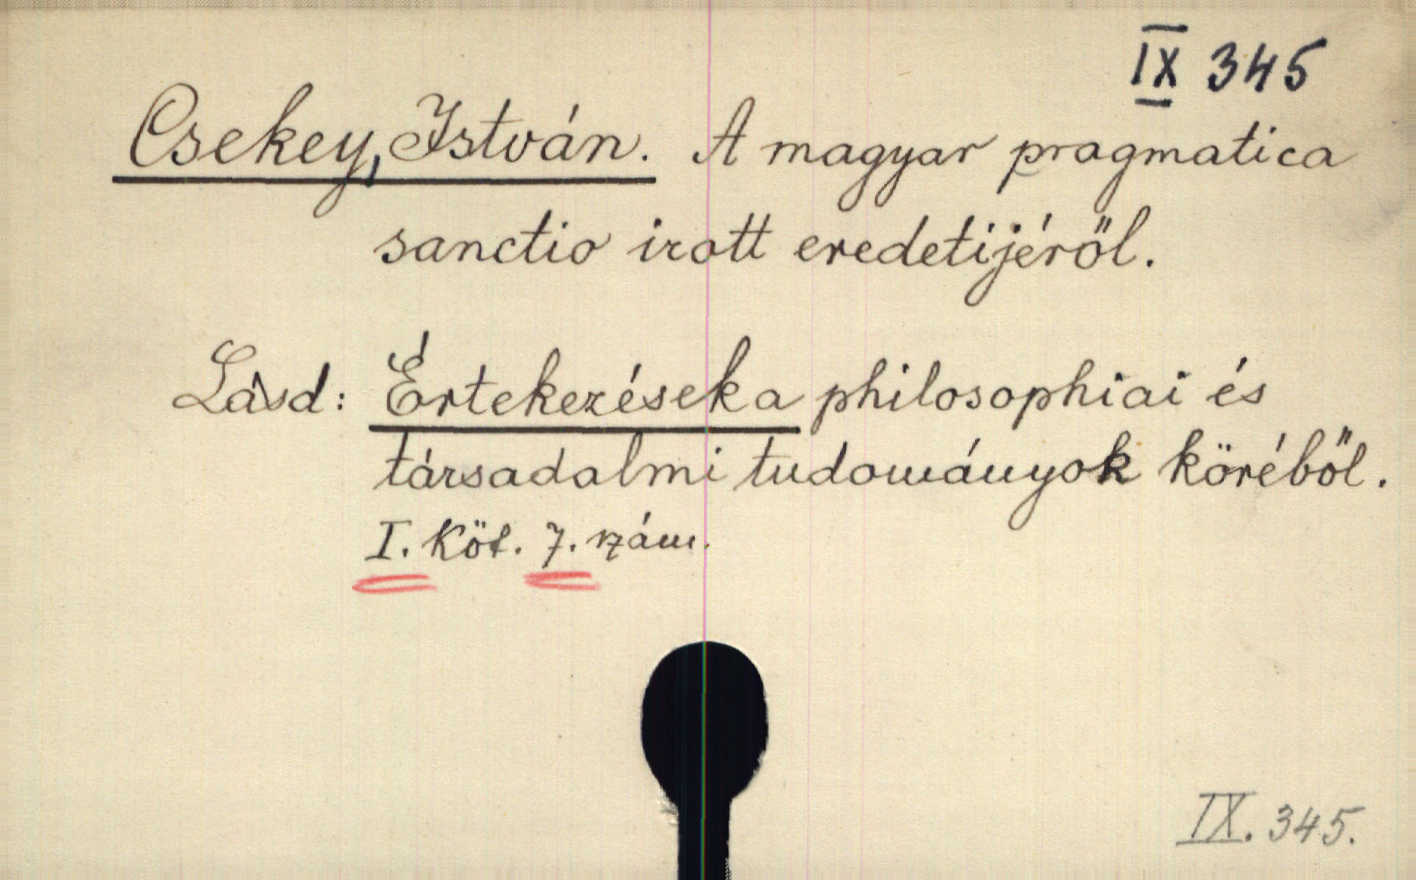 IX 345
Csekey, István. A magyar pragmatica
sanctio irott eredetijéről.
Lásd: Értekezések a philosophiai és
társadalmi tudományok köréből.
I. Köt. 7. szám.
IX. 345.